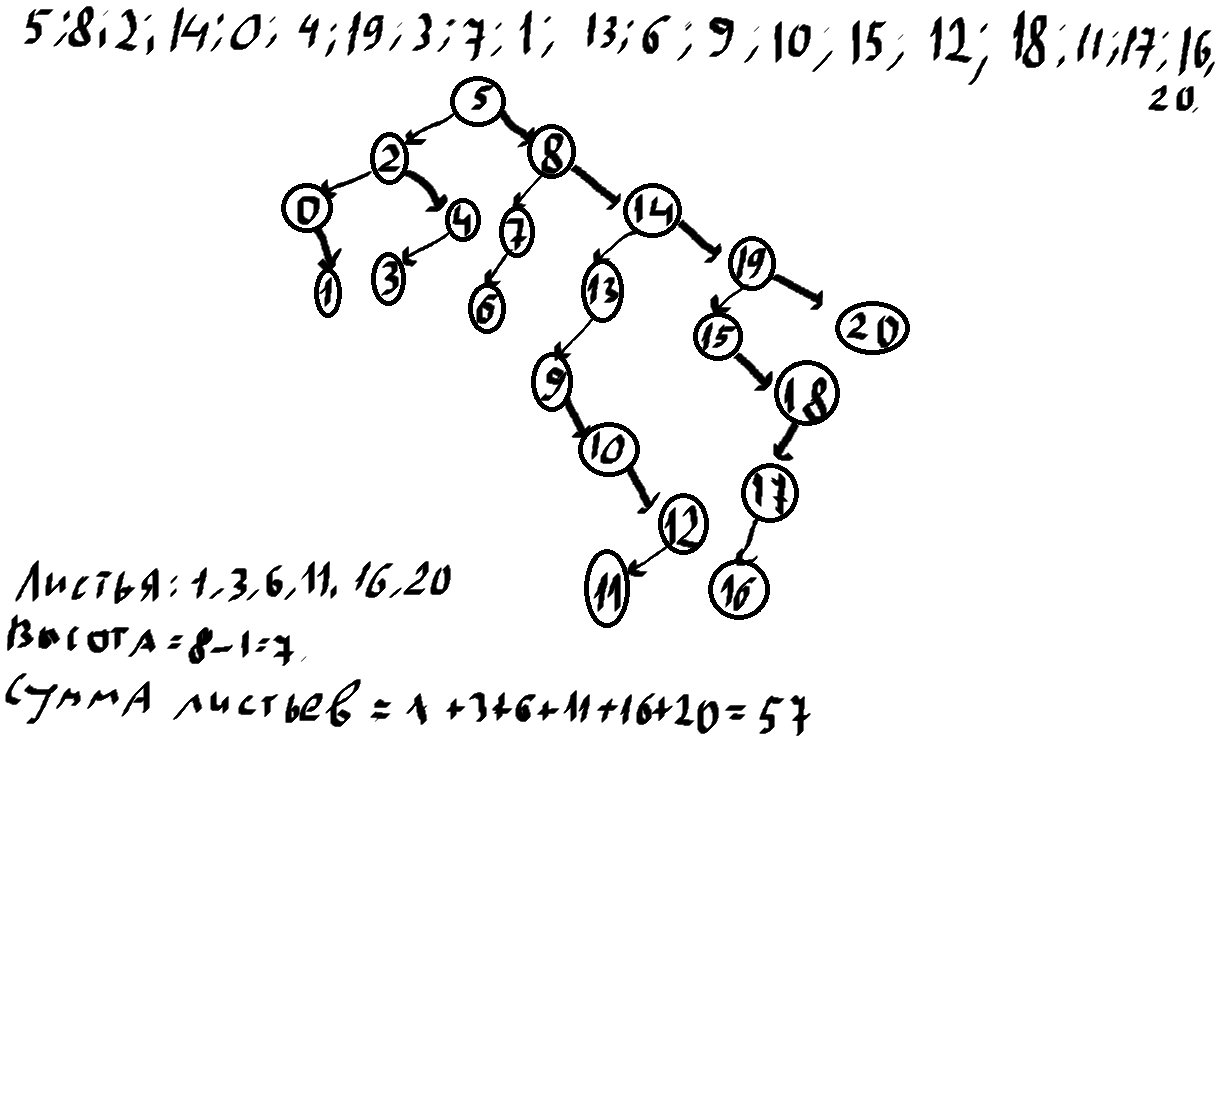 5;8;2;14;0; 4;19;3;7;1; 13;6;9;10;15; 12; 18;11;17;16,
20.
5
2
8
0
4
7
14
19
1
3
6
13
15
20
9
18
10
17
12
11
16
Листья: 1,3,6,11, 16,20
Высота = 8-1=7.
Сумма листьев = 1+3+6+11+16+20=57